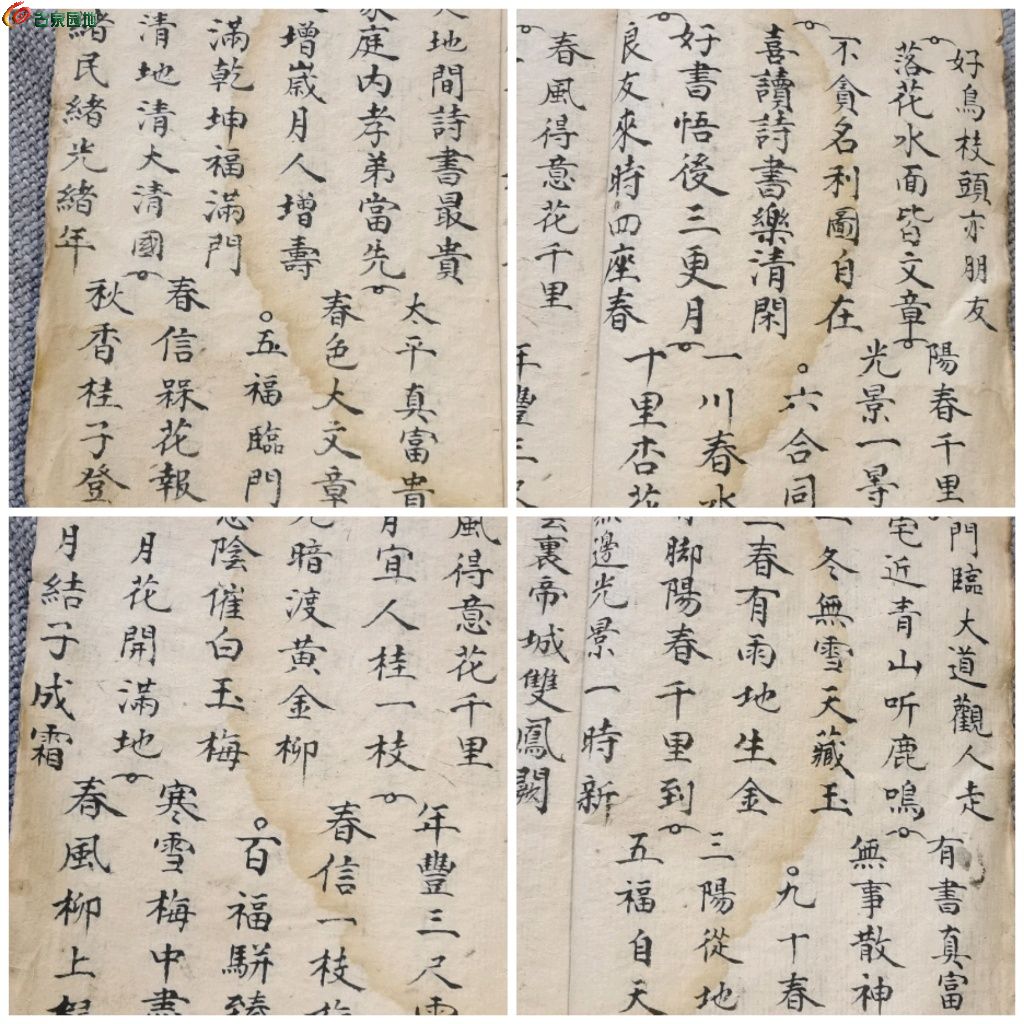 古泉园地
地間詩書最貴
家庭内孝弟當先
增歳月人增壽
滿乾坤福滿門
清地清大清國
緒民緒光緒年
太平真富貴
春色大文章
五福臨門
春信槑花報
秋香桂子登
好鳥枝頭亦朋友
落花水面皆文章
不貪名利圖自在
喜讀詩書樂清閑
好書悟後三更月
良友來時四座春
春風得意花千里
陽春千里
光景一
六合同
一川春水
十里杏花
年豐三尺
風得意花千里
月宜人桂一枝
光暗渡黄金柳
陰催白玉梅
月花開滿地
月結子成霜
年豐三尺雨
春信一枝
百福駢臻
寒雪梅中盡
春風柳上
門臨大道觀人走
宅近青山听鹿鳴
冬無雪天藏玉
春有雨地生金
有脚陽春千里到
無邊光景一時新
雲裏帝城雙鳳闕
有書真富
無事散神
九十春
三陽從地
五福自天